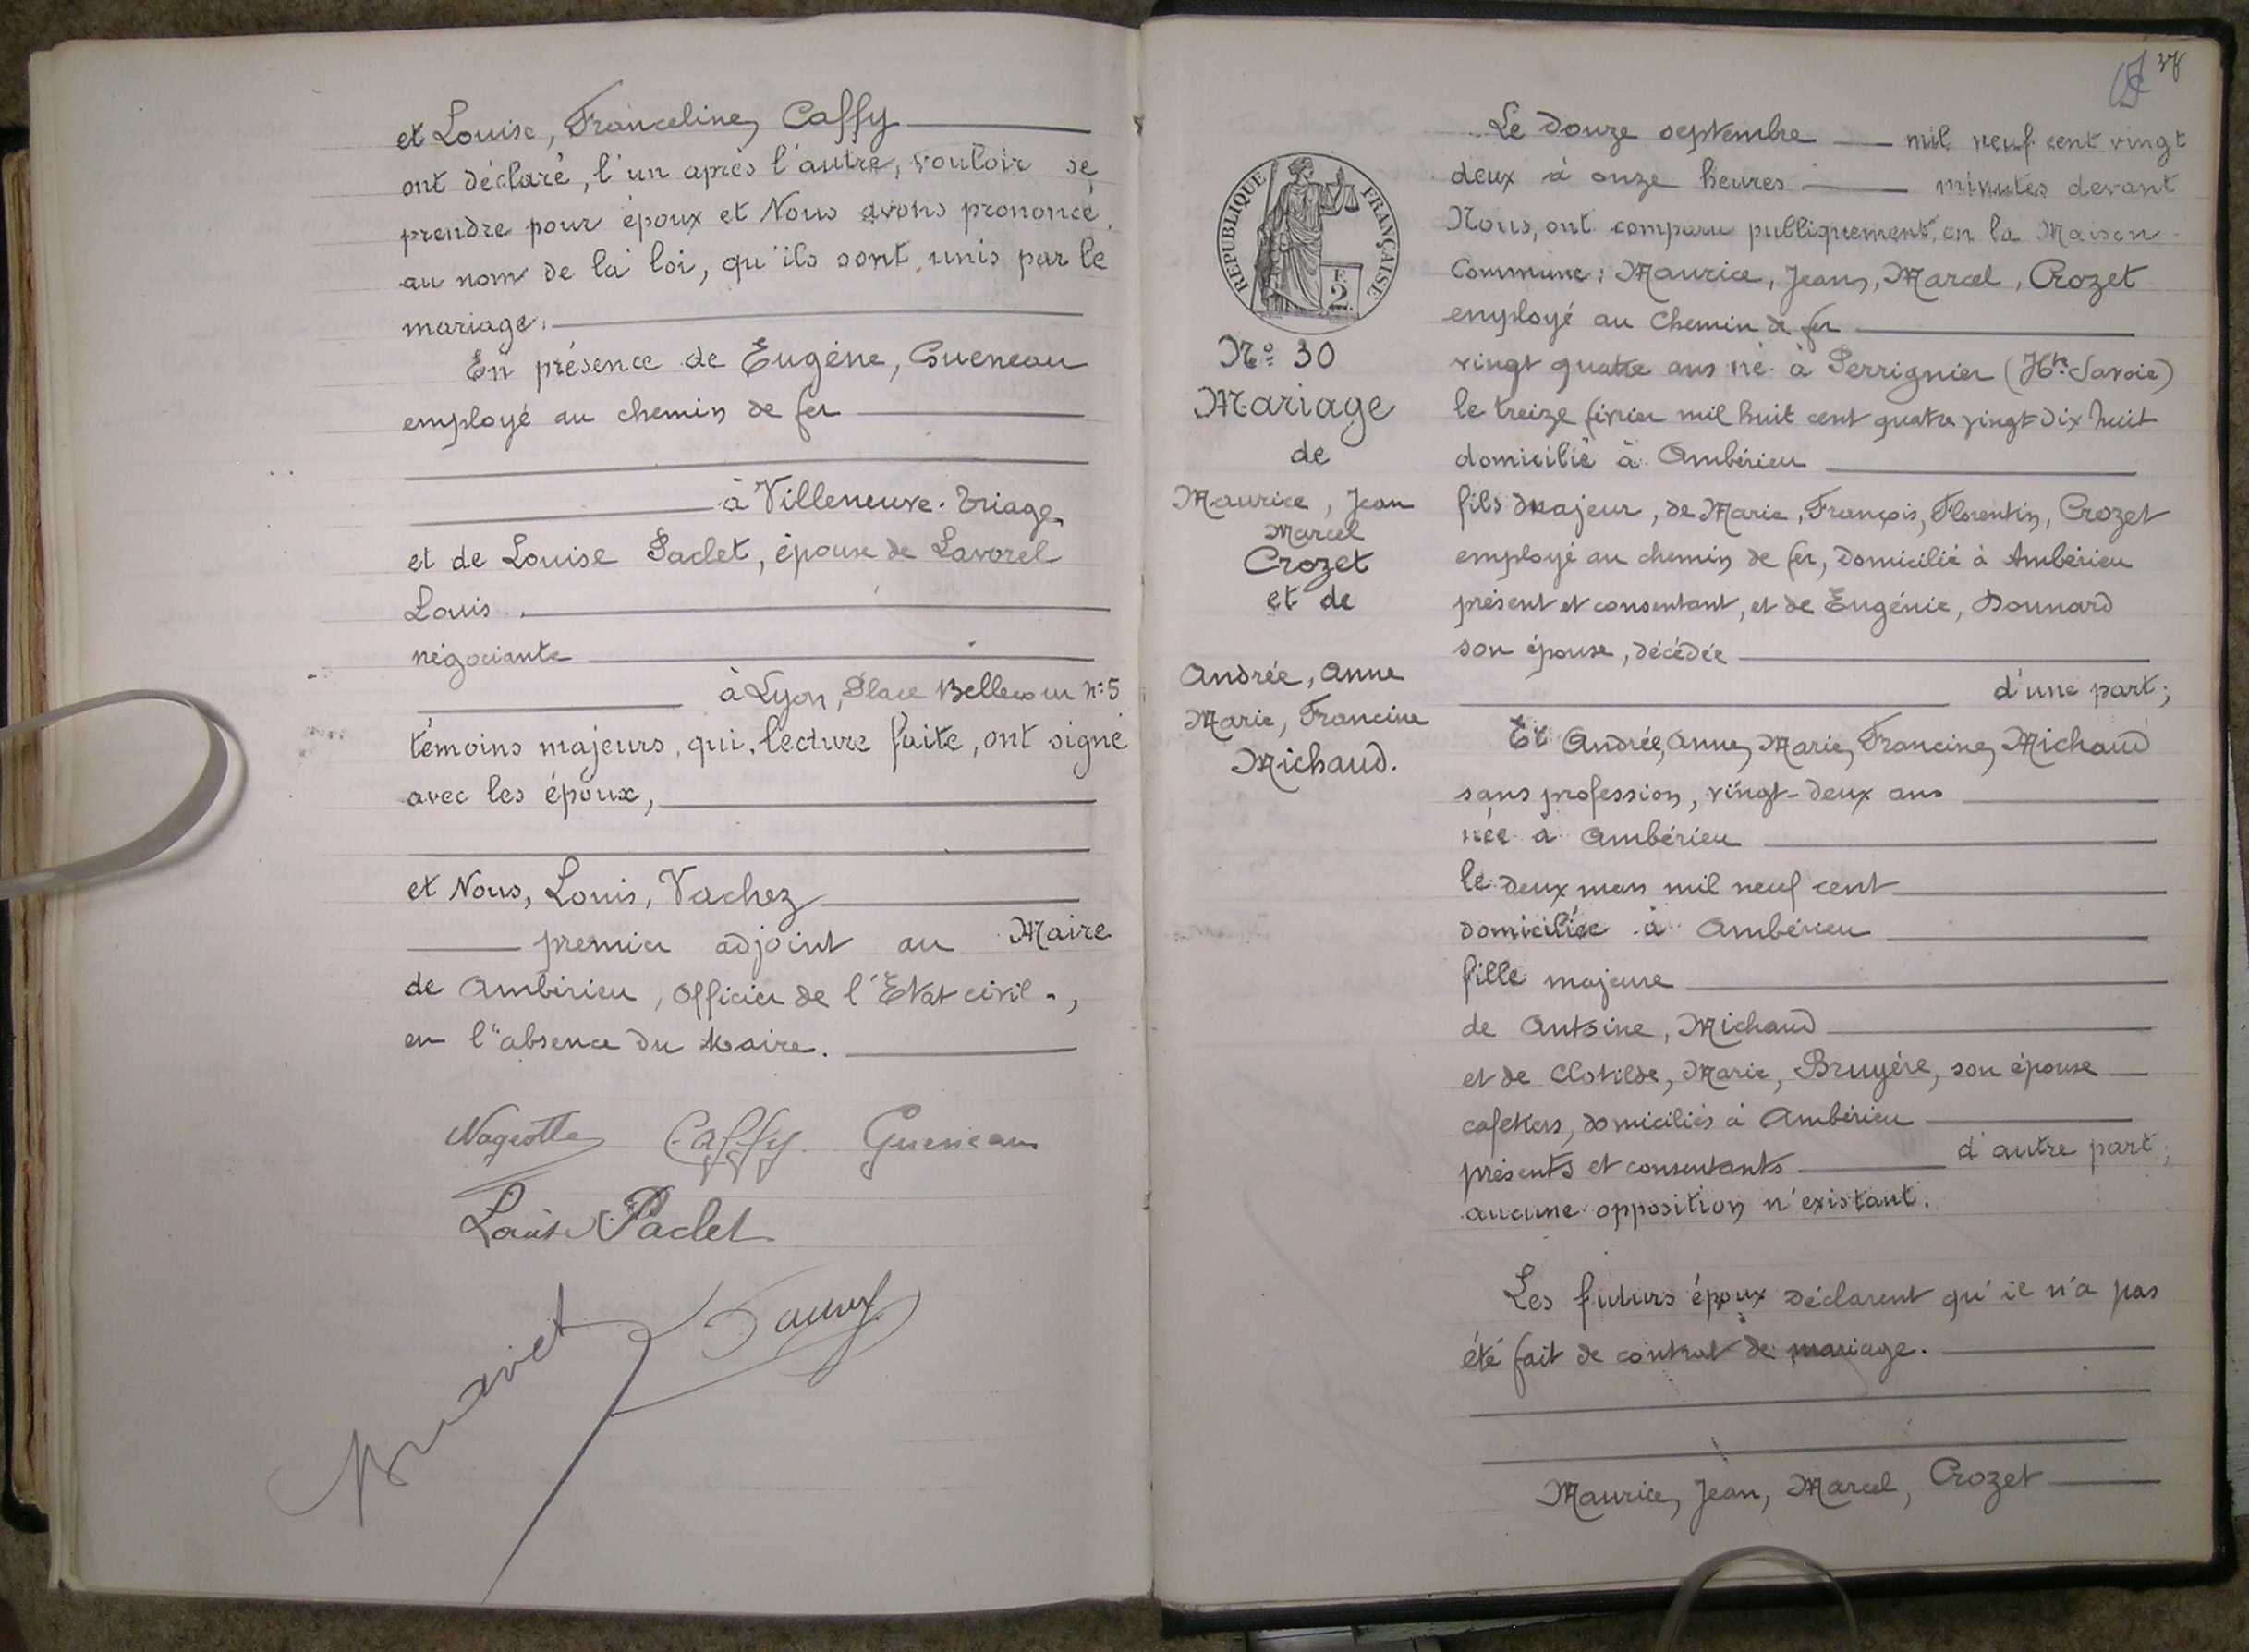 et Louise, Franceline, Caffy
ont déclaré, l'un après l'autre, vouloir se
prendre pour époux et Nous avons prononcé
au nom de la loi, qu'ils sont unis par le
mariage.
En présence de Eugène, Gueneau
employé au chemin de fer
à Villeneuve-Triage
et de Louise Paclet, épouse de Lavorel
Louis
négociante
à Lyon, Place Bellecour N° 5
témoins majeurs, qui, lecture faite, ont signé
avec les époux,
et Nous, Louis, Vachez
premier adjoint au Maire
de Ambérieu, Officier de l'Etat civil,
en l'absence du Maire.
Nageotte Caffy Gueneau
Louise Paclet
37
REPUBLIQUE FRANÇAISE
F.
2
N° 30
Mariage
de
Maurice, Jean
Marcel
Crozet
et de
Andrée, Anne
Marie, Francine
Michaud.
Le douze septembre mil neuf cent vingt
deux à onze heures minutes devant
Nous, ont comparu publiquement en la Maison
Commune : Maurice, Jean, Marcel, Crozet
employé au Chemin de fer
vingt quatre ans né à Perrignier (Hte Savoie)
le treize février mil huit cent quatre vingt dix huit
domicilié à Ambérieu
fils majeur, de Marie, François, Florentin, Crozet
employé au chemin de fer, domicilié à Ambérieu
présent et consentant, et de Eugénie, Dounard
son épouse, décédée
d'une part;
Et Andrée, Anne, Marie, Francine, Michaud
sans profession, vingt-deux ans
née à Ambérieu
le deux mars mil neuf cent
domiciliée à Ambérieu
fille majeure
de Antoine, Michaud
et de Clotilde, Marie, Bruyére, son épouse
cafetiers, domiciliés à Ambérieu
présents et consentants d'autre part;
aucune opposition n'existant.
Les futurs époux déclarent qu'il n'a pas
été fait de contrat de mariage.
Maurice, Jean, Marcel, Crozet